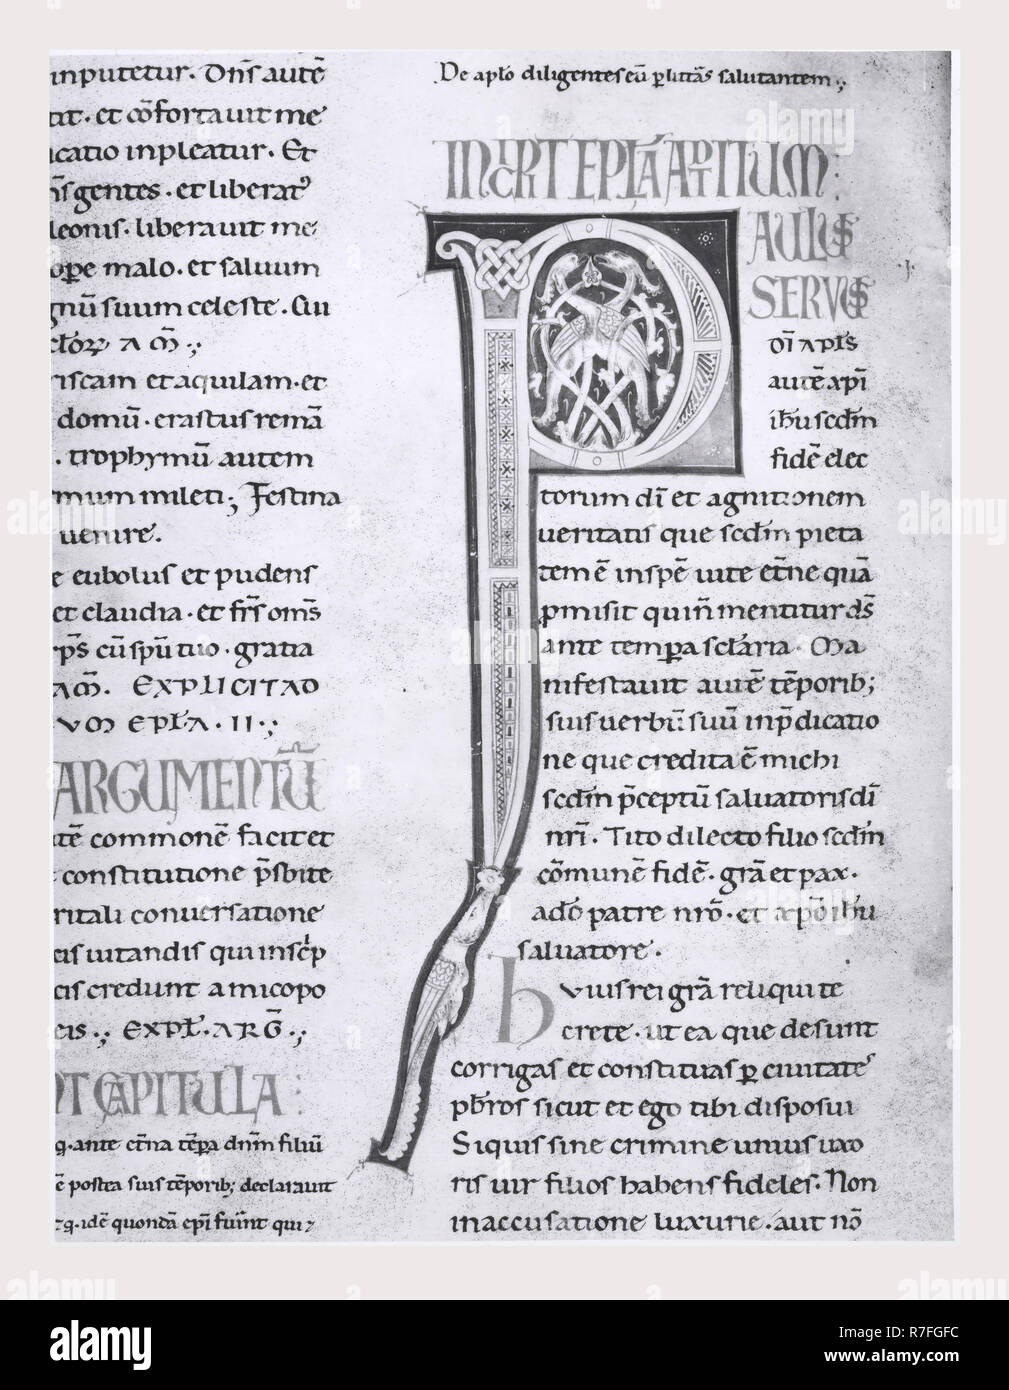 inputetur. Dn̄s autē
tat. et cōfortauit me
icatio inpleatur. Et
gentes. et liberat᷒
leonis. liberauit me
ope malo. et saluum
gnū suum celeste. Cui
AM̄.
riscam et aquilam. et
domū. erastus remā
. trophymū autem
mum mileti; Festina
uenire.
e eubolus et pudens
et claudia. et frs̄ oms̄
cū spū tuo. gratia
AM̄. EXPLICIT AD
EPLA. II.
ARGUMENTŪ
tē commonē facit et
constitutione psbite
ritali conuersatione
eis uitandis qui inscrip
eis credunt a micopo
eis. EXPL. ARG̅.
NT CAPITULA:
q. ante etn̄a tēpora dnm̄ filiū
ē postea suis tēporib; declarauit
De aplo diligentes eū p litt̄as salutantem
INCIPIT EPLA AD TITUM:
P AULUS
SERVUS
DĪ APLS
autē xp̄i
ihu scdm̄
fidē elec
torum dī et agnitionem
ueritatis que scdm̄ pieta
tem ē in spē uite etn̄e quā
pmisit qui n̄ mentitur ds̄
ante tempora sclaria. Ma
nifestauit autē tēporib;
suis uerbū suū in pdicatio
ne que credita ē michi
scdm̄ pceptū saluatoris dī
nr̄i. Tito dilecto filio scdm̄
cōmunē fidē. grā et pax.
a dō patre nrō. et xpō ihu
saluatore.
h Vius rei grā reliqui te
crete. ut ea que desunt
corrigas et constituas p ciuitates
pbr̄os sicut et ego tibi disposui
Siquis sine crimine unius uxo
ris uir filios habens fideles. Non
in accusatione luxurie. aut nō
alamy
Image ID: R7FGFC
www.alamy.com